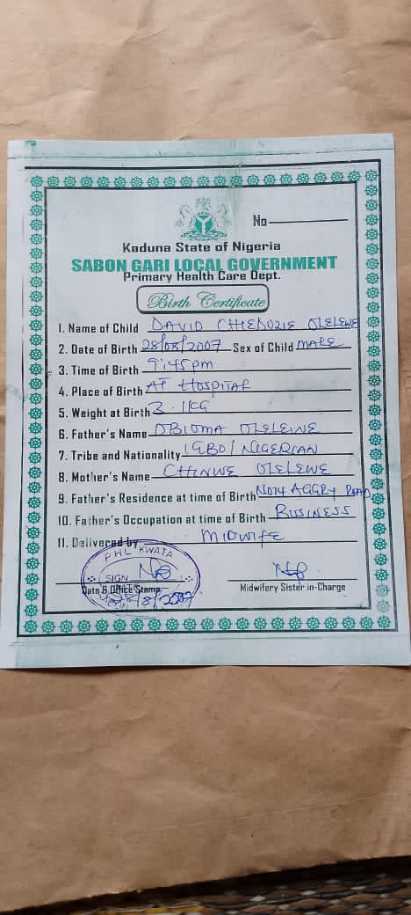 No
Kaduna State of Nigeria
SABON GARI LOCAL GOVERNMENT
Primary Health Care Dept.
Birth Certificate
1. Name of Child DAVID CHIEDOZIE OLELEWE
2. Date of Birth 28/08/2007 Sex of Child MALE
3. Time of Birth 9:45pm
4. Place of Birth AT HOSPITAL
5. Weight at Birth 3.1KG
6. Father's Name OBIOMA
7. Tribe and Nationality IGBO/NIGERIAN
8. Mother's Name CHINWE OLELEWE
9. Father's Residence at time of Birth AGGEY ROAD
10. Father's Occupation at time of Birth BUSSINESS
11. Delivered by MIDWIFE
PHL KWATA
SIGN
Date & Office Stamp Midwifery Sister in-Charge